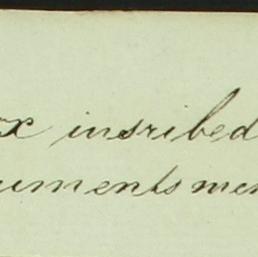 x insribed
uments men